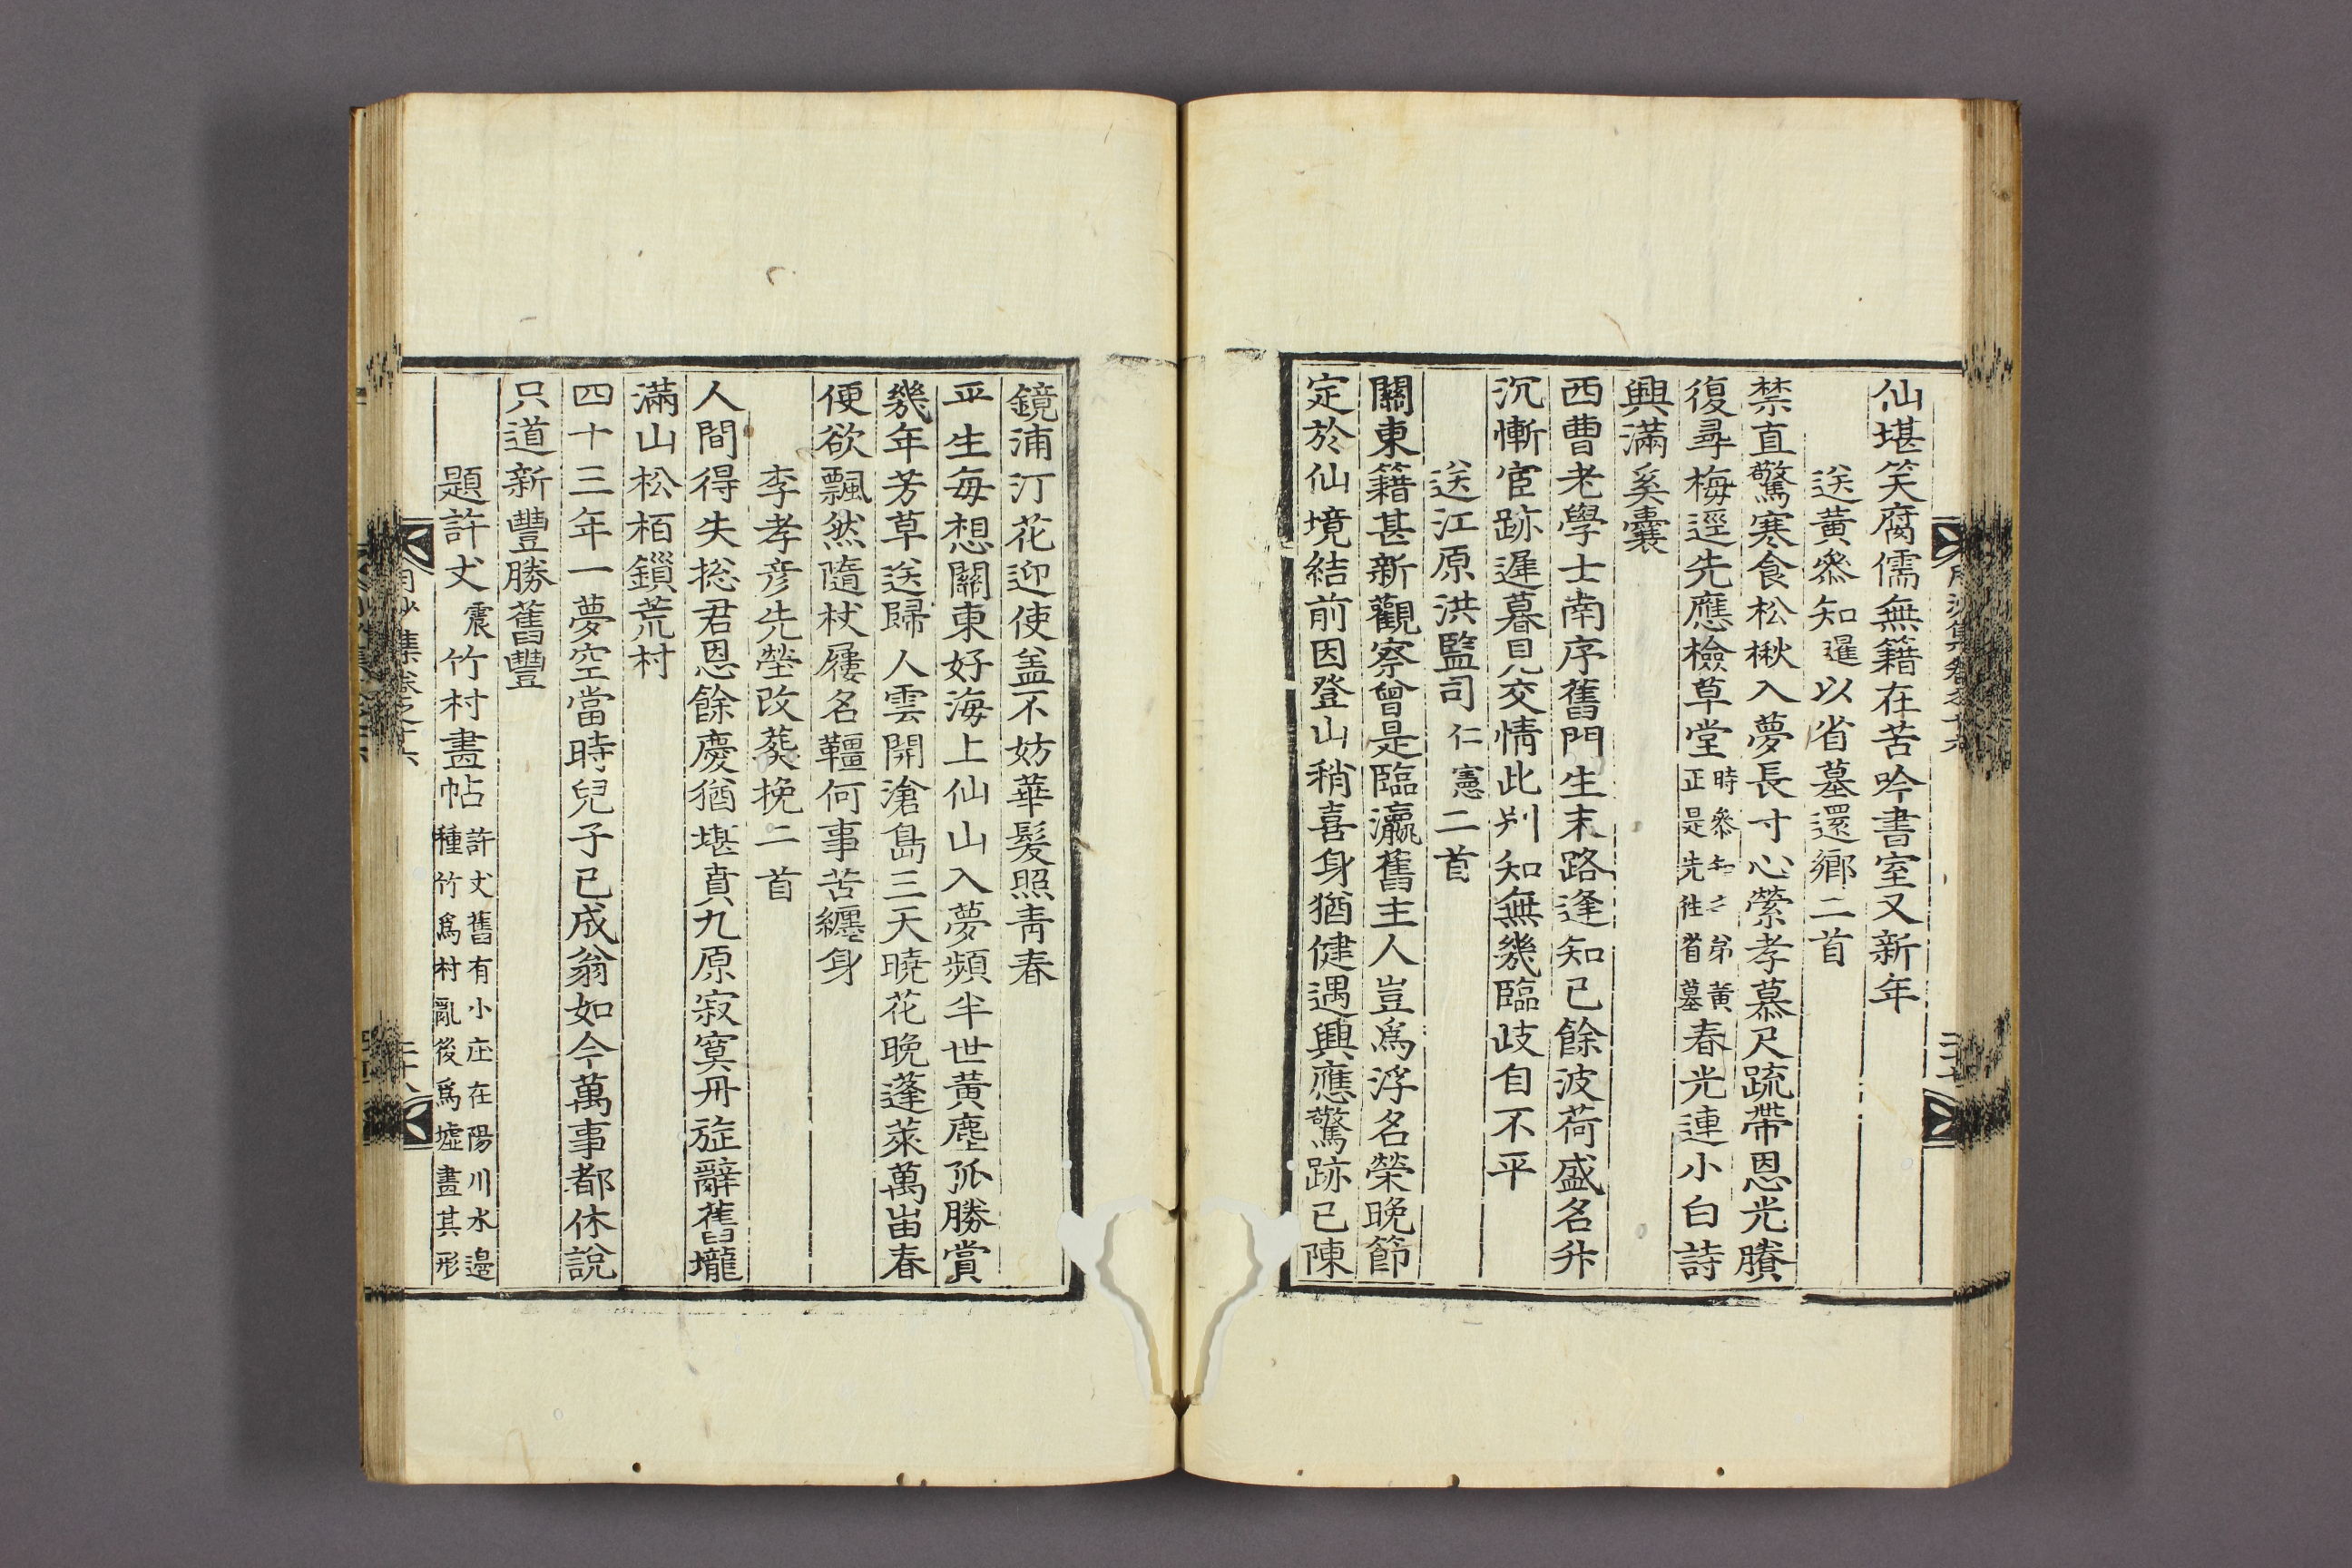 仙堪笑腐儒無籍在苦吟書室又新年
送黃叅知暹以省墓還鄉二首
禁直驚寒食松楸入夢長寸心縈孝慕尺疏帶恩光賸
復尋梅逕先應檢草堂時叅知之弟黃正是先往省墓春光連小白詩
興滿奚囊
西曹老學士南序舊門生末路逢知己餘波荷盛名升
沉慚宦跡遲暮見交情此別知無幾臨歧自不平
送江原洪監司仁憲二首
關東籍甚新觀察曾是臨瀛舊主人豈爲浮名榮晩節
定於仙境結前因登山稍喜身猶健遇興應驚跡已陳
鏡浦汀花迎使盖不妨華髮照靑春
平生每想關東好海上仙山入夢頻半世黃塵孤勝賞
幾年芳草送歸人雲開滄島三天曉花晩蓬萊萬峀春
便欲飄然隨杖屨名韁何事苦纏身
李孝彦先塋改葬挽二首
人間得失捴君恩餘慶猶堪賁九原寂寞丹旌辭舊壠
滿山松栢鎻荒村
四十三年一夢空當時兒子已成翁如今萬事都休說
只道新豐勝舊豐
題許丈震竹村畵帖許丈舊有小庄在陽川水邉種竹爲村亂後爲墟畵其形
月沙集卷之十六